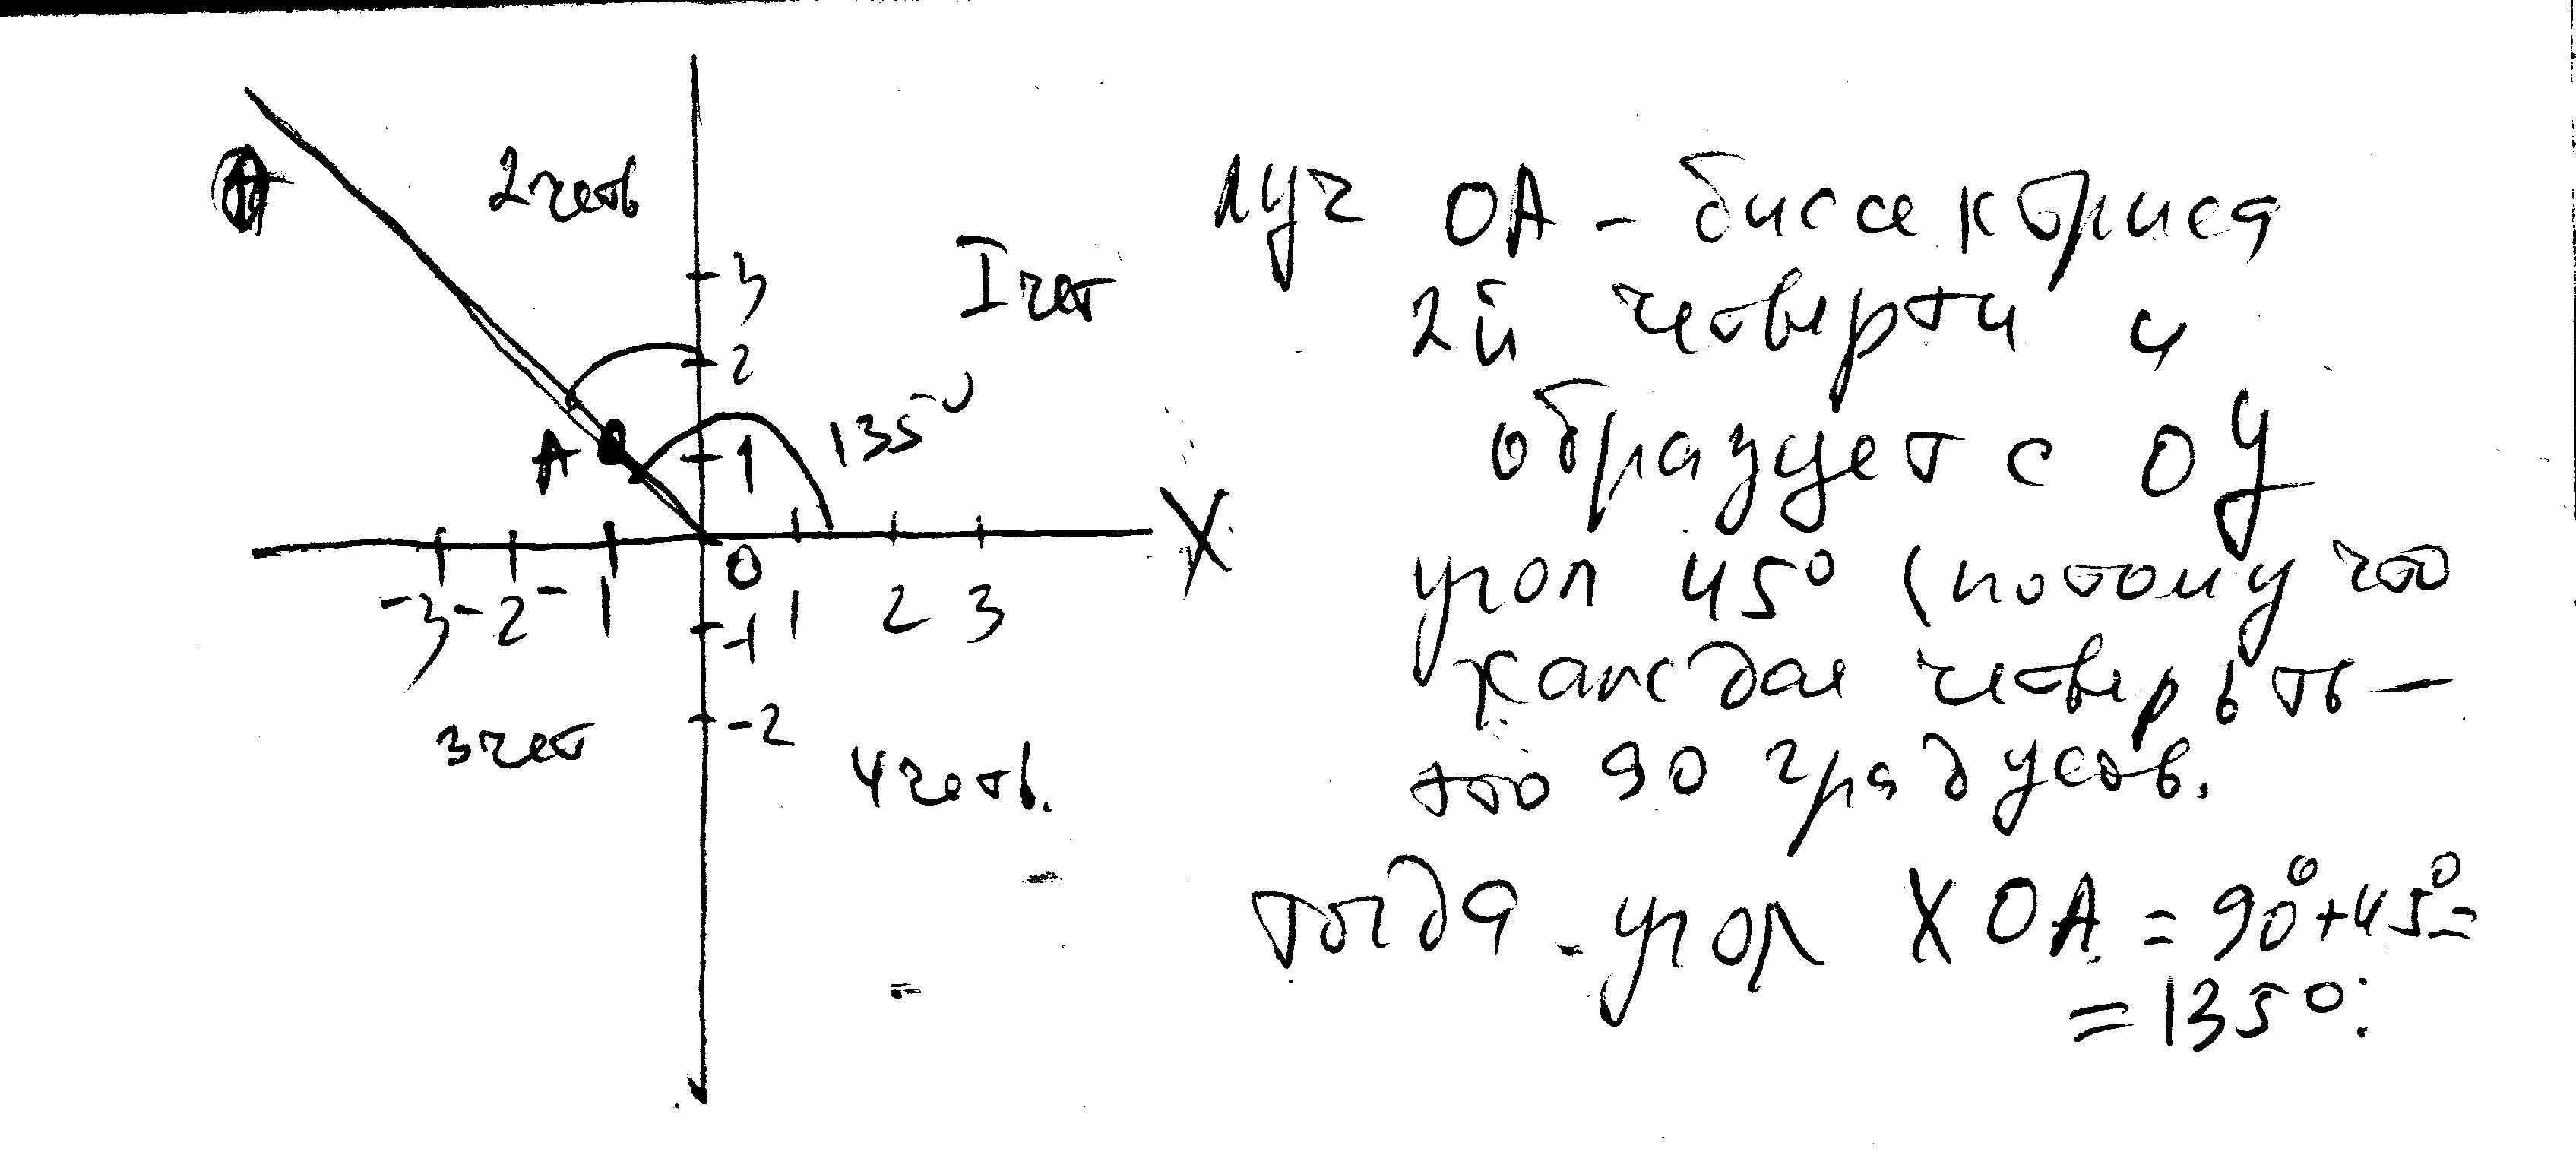 2четв
3
I чет
2
135°
A
1
X
0
-3 -2 -1
1 2 3
-1
-2
3чет
4четв.
луч OA - биссектриса
2й четверти и
образует с OY
угол 45° (потому что
каждая четверьть -
это 90 градусов.
тогда угол XOA = 90°+45°=
=135°.